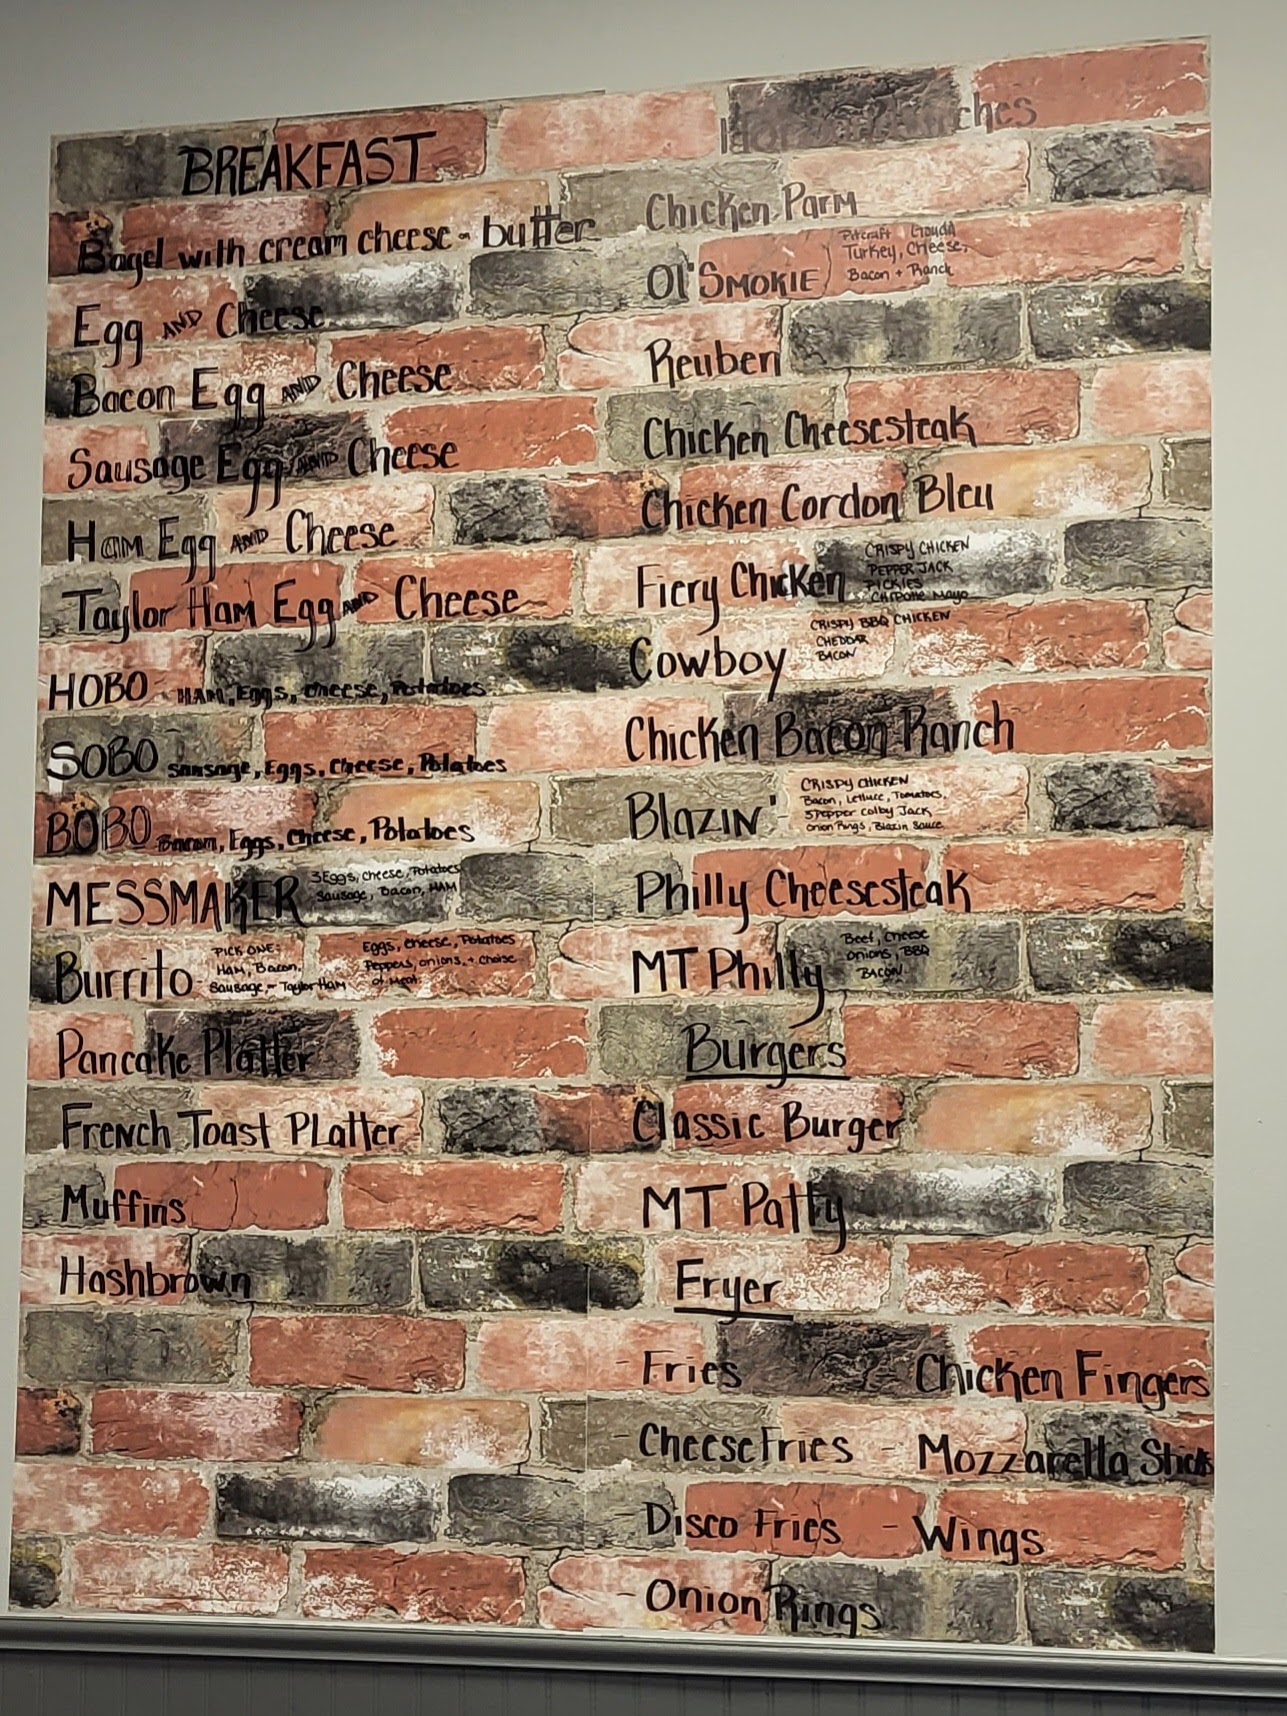 BREAKFAST
Bagel with cream cheese or butter
Egg AND Cheese
Bacon Egg AND Cheese
Sausage Egg AND Cheese
Ham Egg AND Cheese
Taylor Ham Egg AND Cheese
HOBO - HAM, Eggs, Cheese, Potatoes
SOBO Sausage, Eggs, Cheese, Potatoes
BOBO Bacon, Eggs, Cheese, Potatoes
MESSMAKER 3 Eggs, Cheese, Potatoes
Sausage, Bacon, HAM
Burrito - PICK ONE:
HAM, Bacon,
Sausage, or Taylor HAM
Eggs, Cheese, Potatoes
Peppers, onions, + Choise
of Meat
Pancake Platter
French Toast Platter
Muffins
Hashbrown
Chicken Parm
Ol' Smokie Pitcraft Gouda
Turkey, Cheese,
Bacon + Ranch
Reuben
Chicken Cheesesteak
Chicken Cordon Bleu
Fiery Chicken CRISPY CHICKEN
PEPPER JACK
PICKLES
Chipotle Mayo
Cowboy CRISPY BBQ CHICKEN
CHEDDAR
BACON
Chicken Bacon Ranch
Blazin' - CRISPY CHICKEN
Bacon, Lettuce, Tomatoes,
3 Pepper Colby Jack,
Onion Rings, Blazin Sauce
Philly Cheesesteak
MT Philly Beef, Cheese
Onions, BBQ
BACON
Burgers
Classic Burger
MT Patty
Fryer
- Fries - Chicken Fingers
- Cheese Fries - Mozzarella Sticks
- Disco Fries - Wings
- Onion Rings